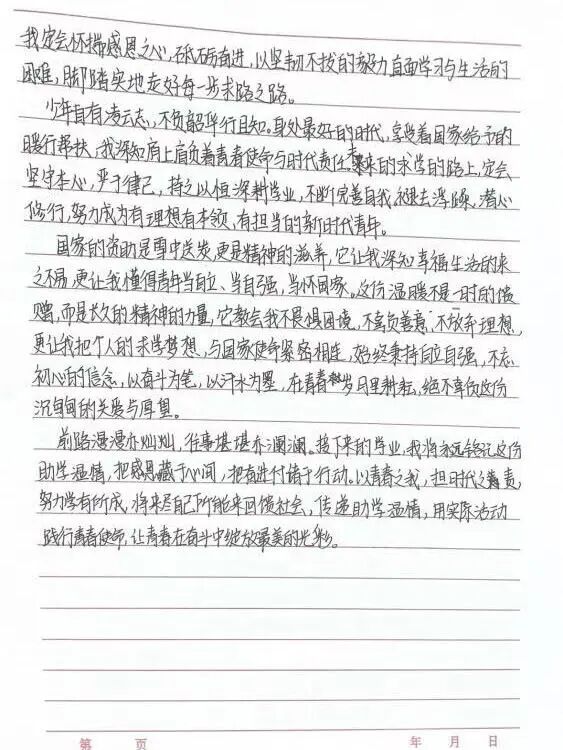 我定会怀揣感恩之心，砥砺奋进，以坚韧不拔的毅力直面学习与生活的
困难，脚踏实地走好每一步求路之路。
少年自有凌云志，不负韶华行且知。身处最好的时代，享受着国家给予的
暖行帮扶，我深知肩上肩负着青春使命与时代责任。未来的求学的路上，定会
坚守本心，严于律己，持之以恒深耕学业，不断完善自我，褪去浮躁、潜心
修行，努力成为有理想有本领、有担当的新时代青年。
国家的资助是雪中送炭，更是精神的滋养，它让我深知幸福生活的来
之不易，更让我懂得青年当自立、当自强，当怀国家。这份温暖不是一时的馈
赠，而是长久的精神的力量，它教会我不畏惧困境，不辜负善意，不放弃理想，
更让我把个人的求学梦想，与国家使命紧密相连，始终秉持自立自强，不忘
初心的信念，以奋斗为笔，以汗水为墨，在青春岁月里耕耘，绝不辜负这份
沉甸甸的关爱与厚望。
前路漫漫亦灿灿，往事堪堪亦澜澜。接下来的学业，我将永远铭记这份
助学温情，把感恩藏于心间，把奋进付诸于行动。以青春之我，担时代之责，
努力学有所成，将来尽自己所能来回馈社会，传递助学温情，用实际活动
践行青春使命，让青春在奋斗中绽放最美的光彩。
第 页 年 月 日